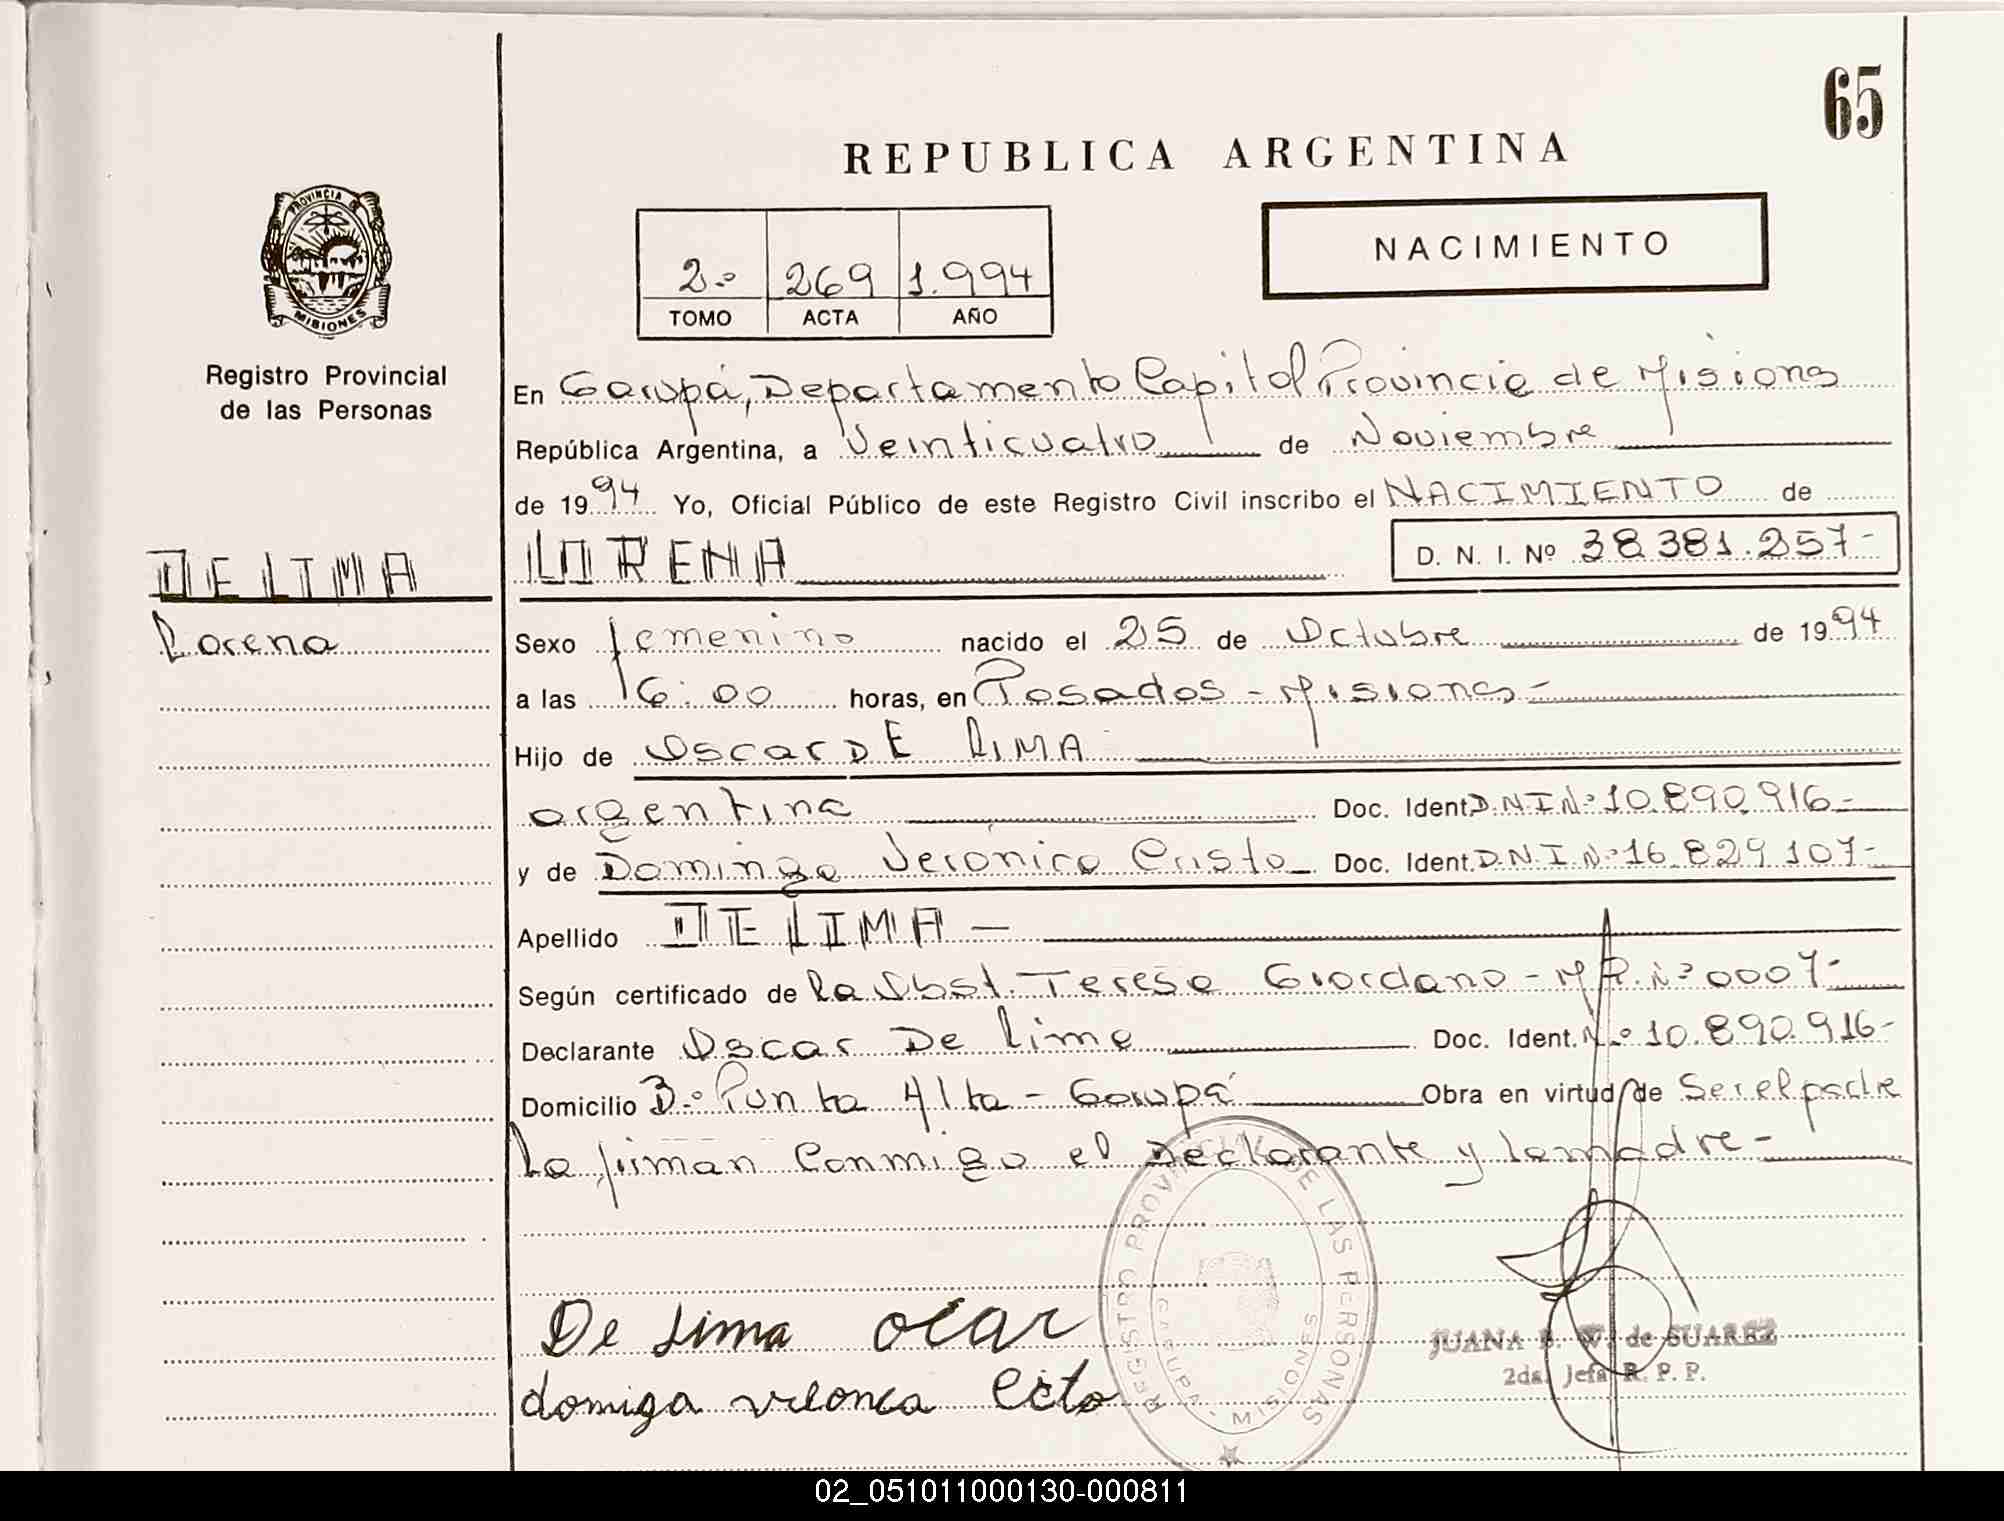 65
REPUBLICA ARGENTINA
PROVINCIA DE
MISIONES
Registro Provincial
de las Personas
2.º 269 1.994
TOMO ACTA AÑO
NACIMIENTO
En Garupá, Departamento Capital Provincia de Misiones
República Argentina, a Veinticuatro de Noviembre
de 1994 Yo, Oficial Público de este Registro Civil inscribo el NACIMIENTO de
DE LIMA
Lorena
LORENA D. N. I. Nº 38.381.257-
Sexo femenino nacido el 25 de Octubre de 1994
a las 16:00 horas, en Posadas - Misiones -
Hijo de Oscar DE LIMA
argentina Doc. Ident. D.N.I Nº 10.890.916-
y de Dominga Verónica Cristo Doc. Ident. D.N.I. Nº 16.829.107-
Apellido DE LIMA -
Según certificado de La Obst. Teresa Giordano - M.P. Nº 0007-
Declarante Oscar De Lima Doc. Ident. Nº 10.890.916-
Domicilio Bº Punta Alta - Garupá Obra en virtud de Ser el padre
La firman Conmigo el Declarante y la madre -
De Lima ocar
domiga
REGISTRO PROVINCIAL DE LAS PERSONAS
GARUPA - MISIONES
JUANA B. W. de SUAREZ
2da. Jefa R. P. P.
02_051011000130-000811